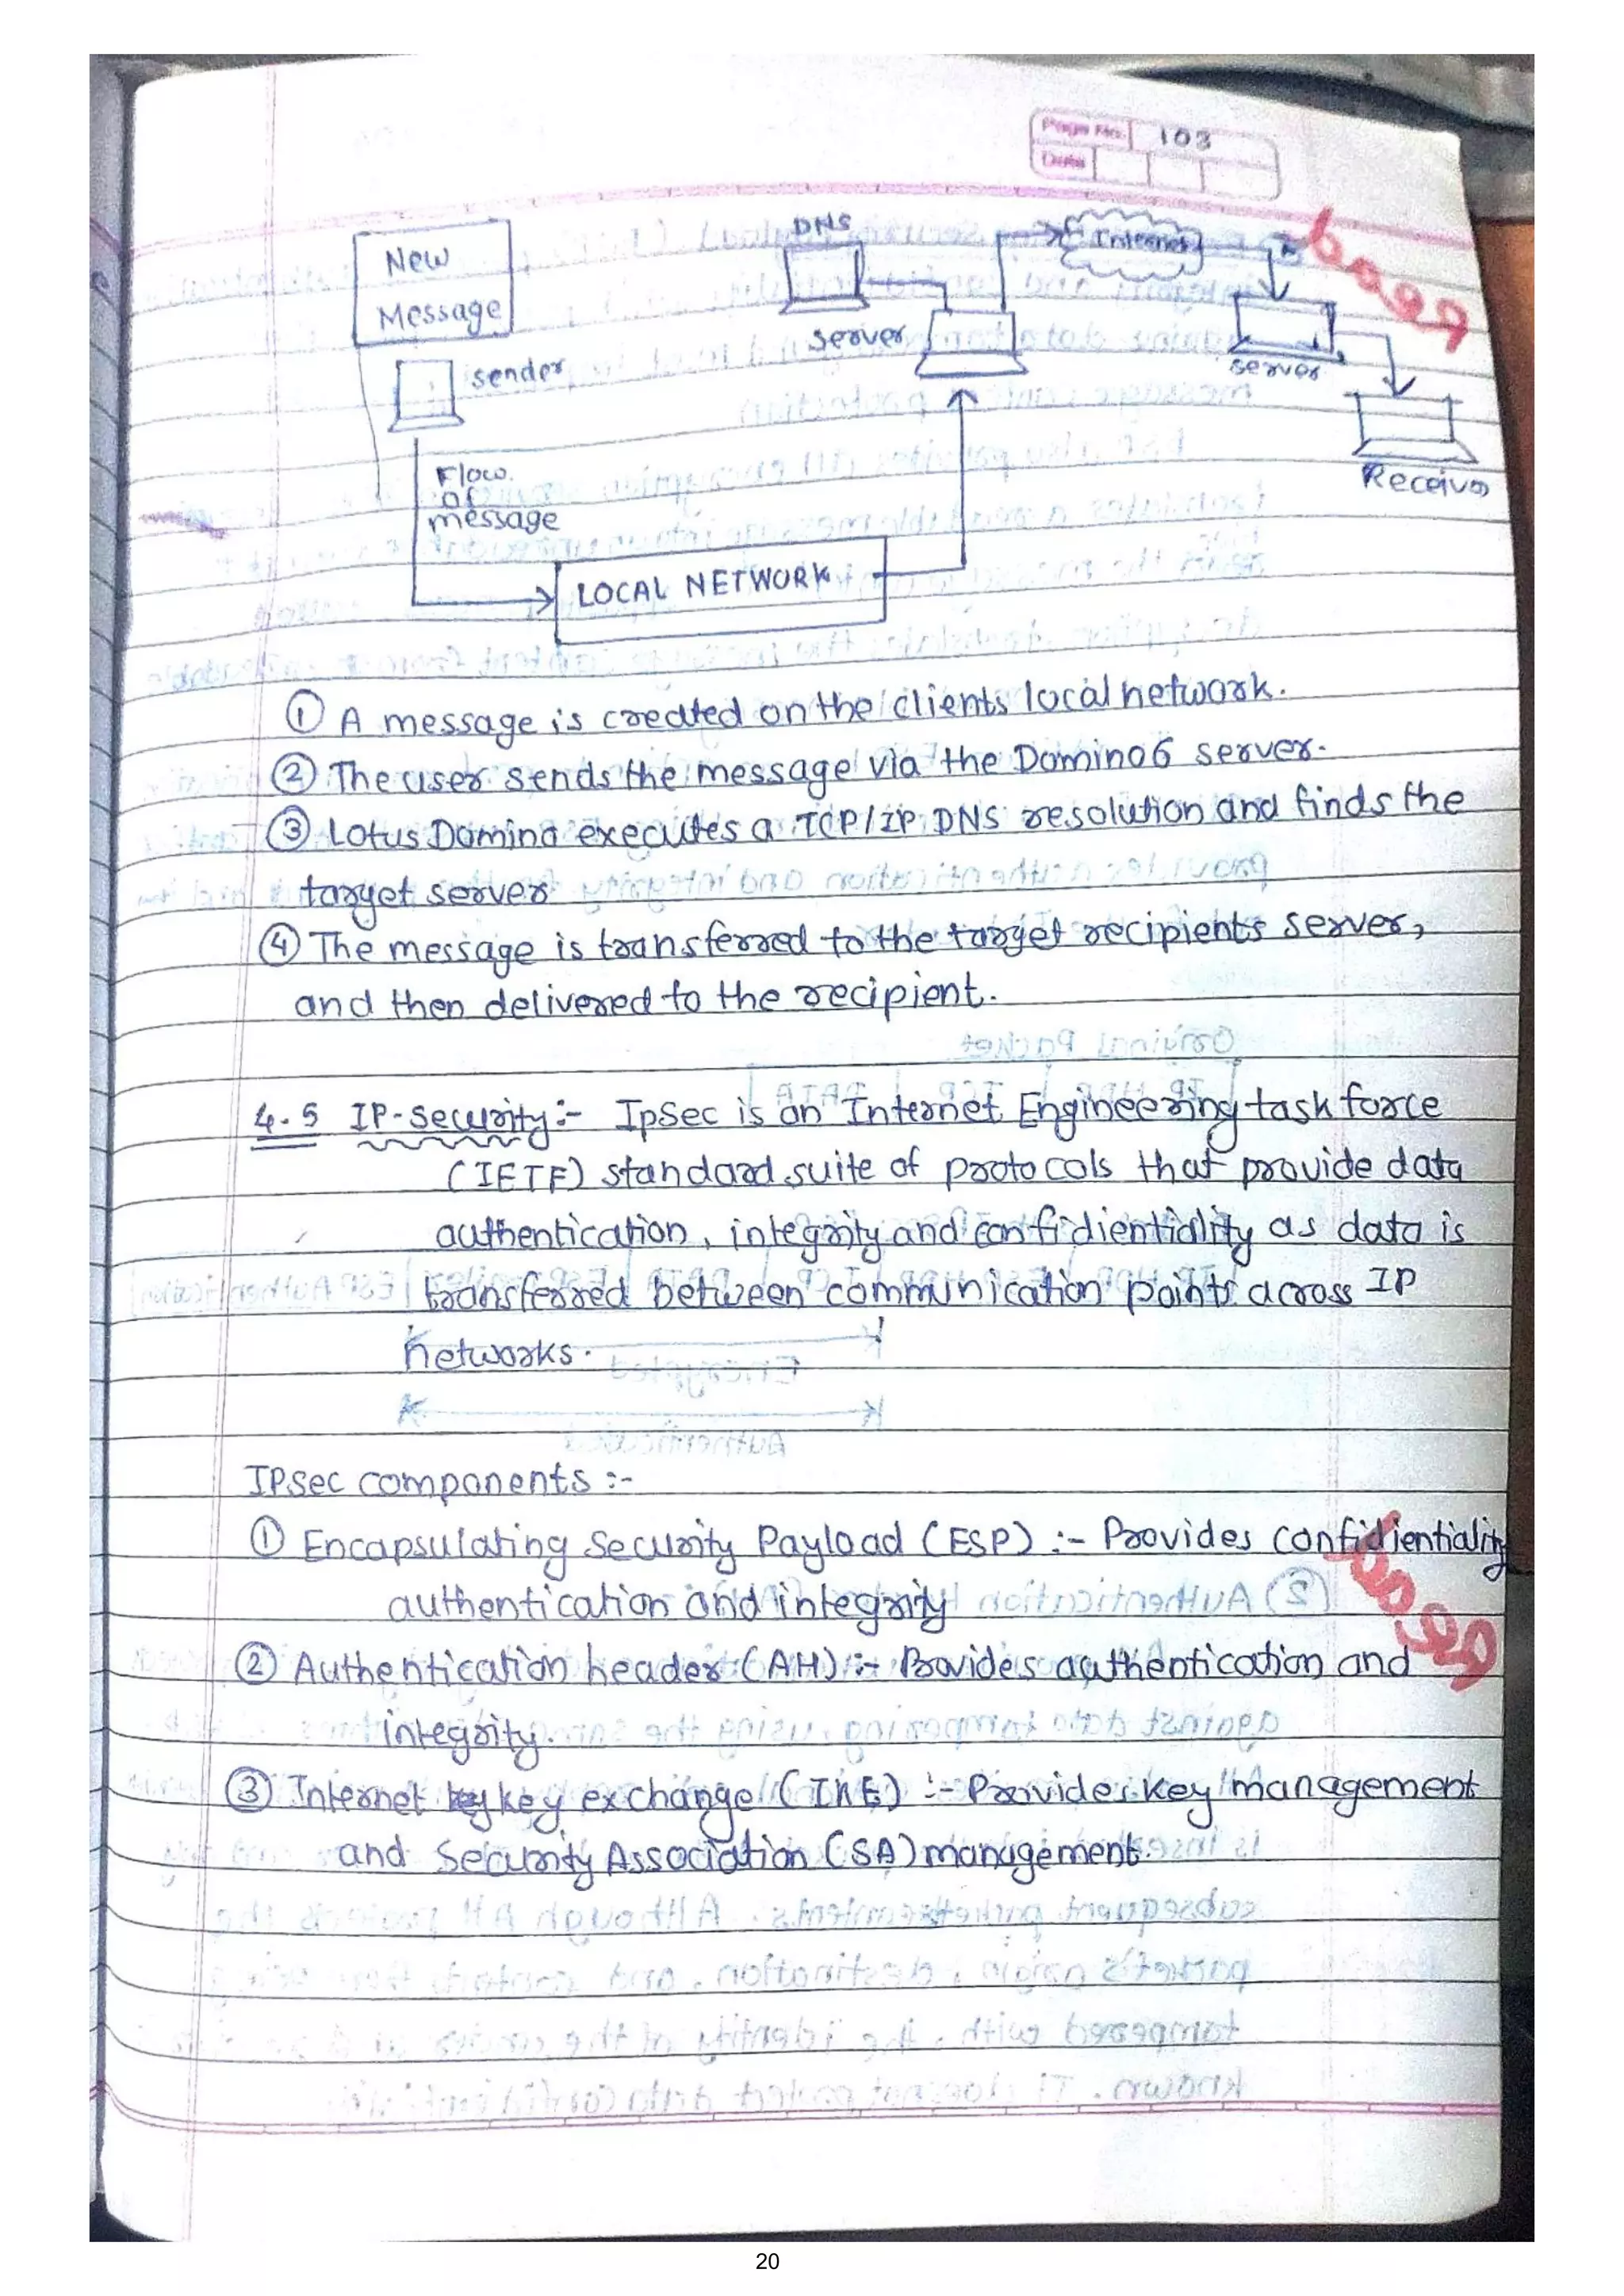 Page No. 103
Date
New
Message
DNS
Internet
sender
server
server
Receiver
Flow
of
message
LOCAL NETWORK
① A message is created on the clients local network.
② The user sends the message via the Domino6 server.
③ Lotus Domino executes a TCP/IP DNS resolution and finds the
target server
④ The message is transferred to the target recipients server,
and then delivered to the recipient.
4.5 IP-security :- IpSec is an Internet Engineering task force
(IETF) standard suite of protocols that provide data
authentication, integrity and confidientiality as data is
transferred between communication points across IP
networks.
IPsec components :-
① Encapsulating Security Payload (ESP) :- Provides confidientiality
authentication and integrity
② Authentication header (AH) :- Provides authentication and
integrity.
③ Internet key exchange (IKE) :- Provides key management
and Security Association (SA) management.
20